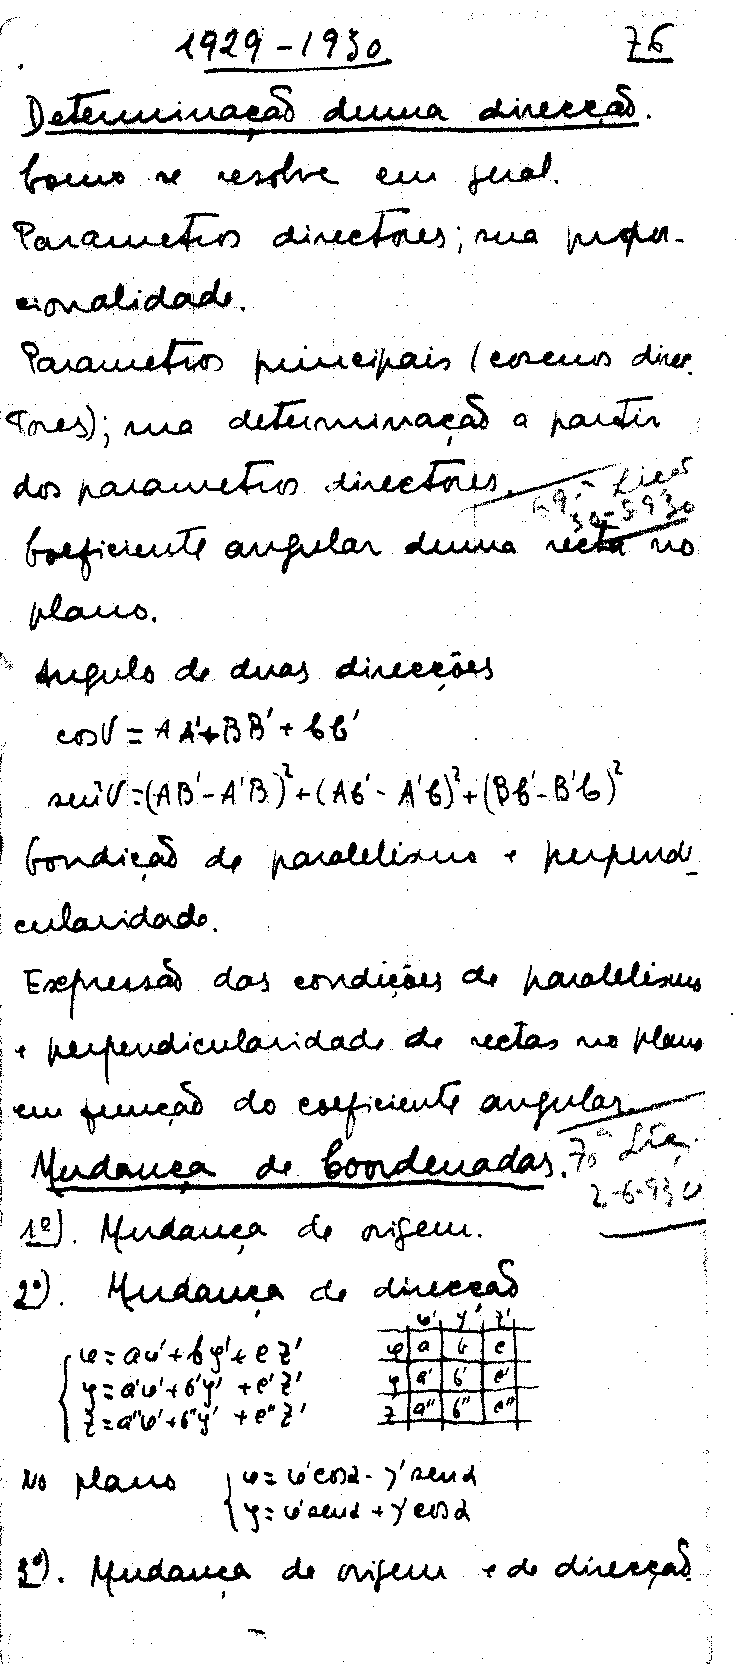 1929-1930 76
Determinação duma direcção.
Como se resolve em geral.
Parametros directores; sua propor-
cionalidade.
Parametros principais (cosenos direc-
tores); sua determinação a partir
dos parametros directores.
69.ª Liç
30-5-930
Coeficiente angular duma recta no
plano.
Angulo de duas direcções
cos V = AA' + BB' + CC'
sen²V = (AB' - A'B)² + (AC' - A'C)² + (BC' - B'C)²
Condição de paralelismo e perpendi-
cularidade.
Expressão das condições de paralelismo
e perpendicularidade de rectas no plano
em função do coeficiente angular.
Mudança de Coordenadas.
70ª Liç.
2-6-930
1º). Mudança de origem.
2º). Mudança de direcção
x = ax' + by' + cz'
y = a'x' + b'y' + c'z'
z = a''x' + b''y' + c''z'
x' y' z'
x a b c
y a' b' c'
z a'' b'' c''
No plano
x = x' cos α - y' sen α
y = x' sen α + y' cos α
3º). Mudança de origem e de direcção